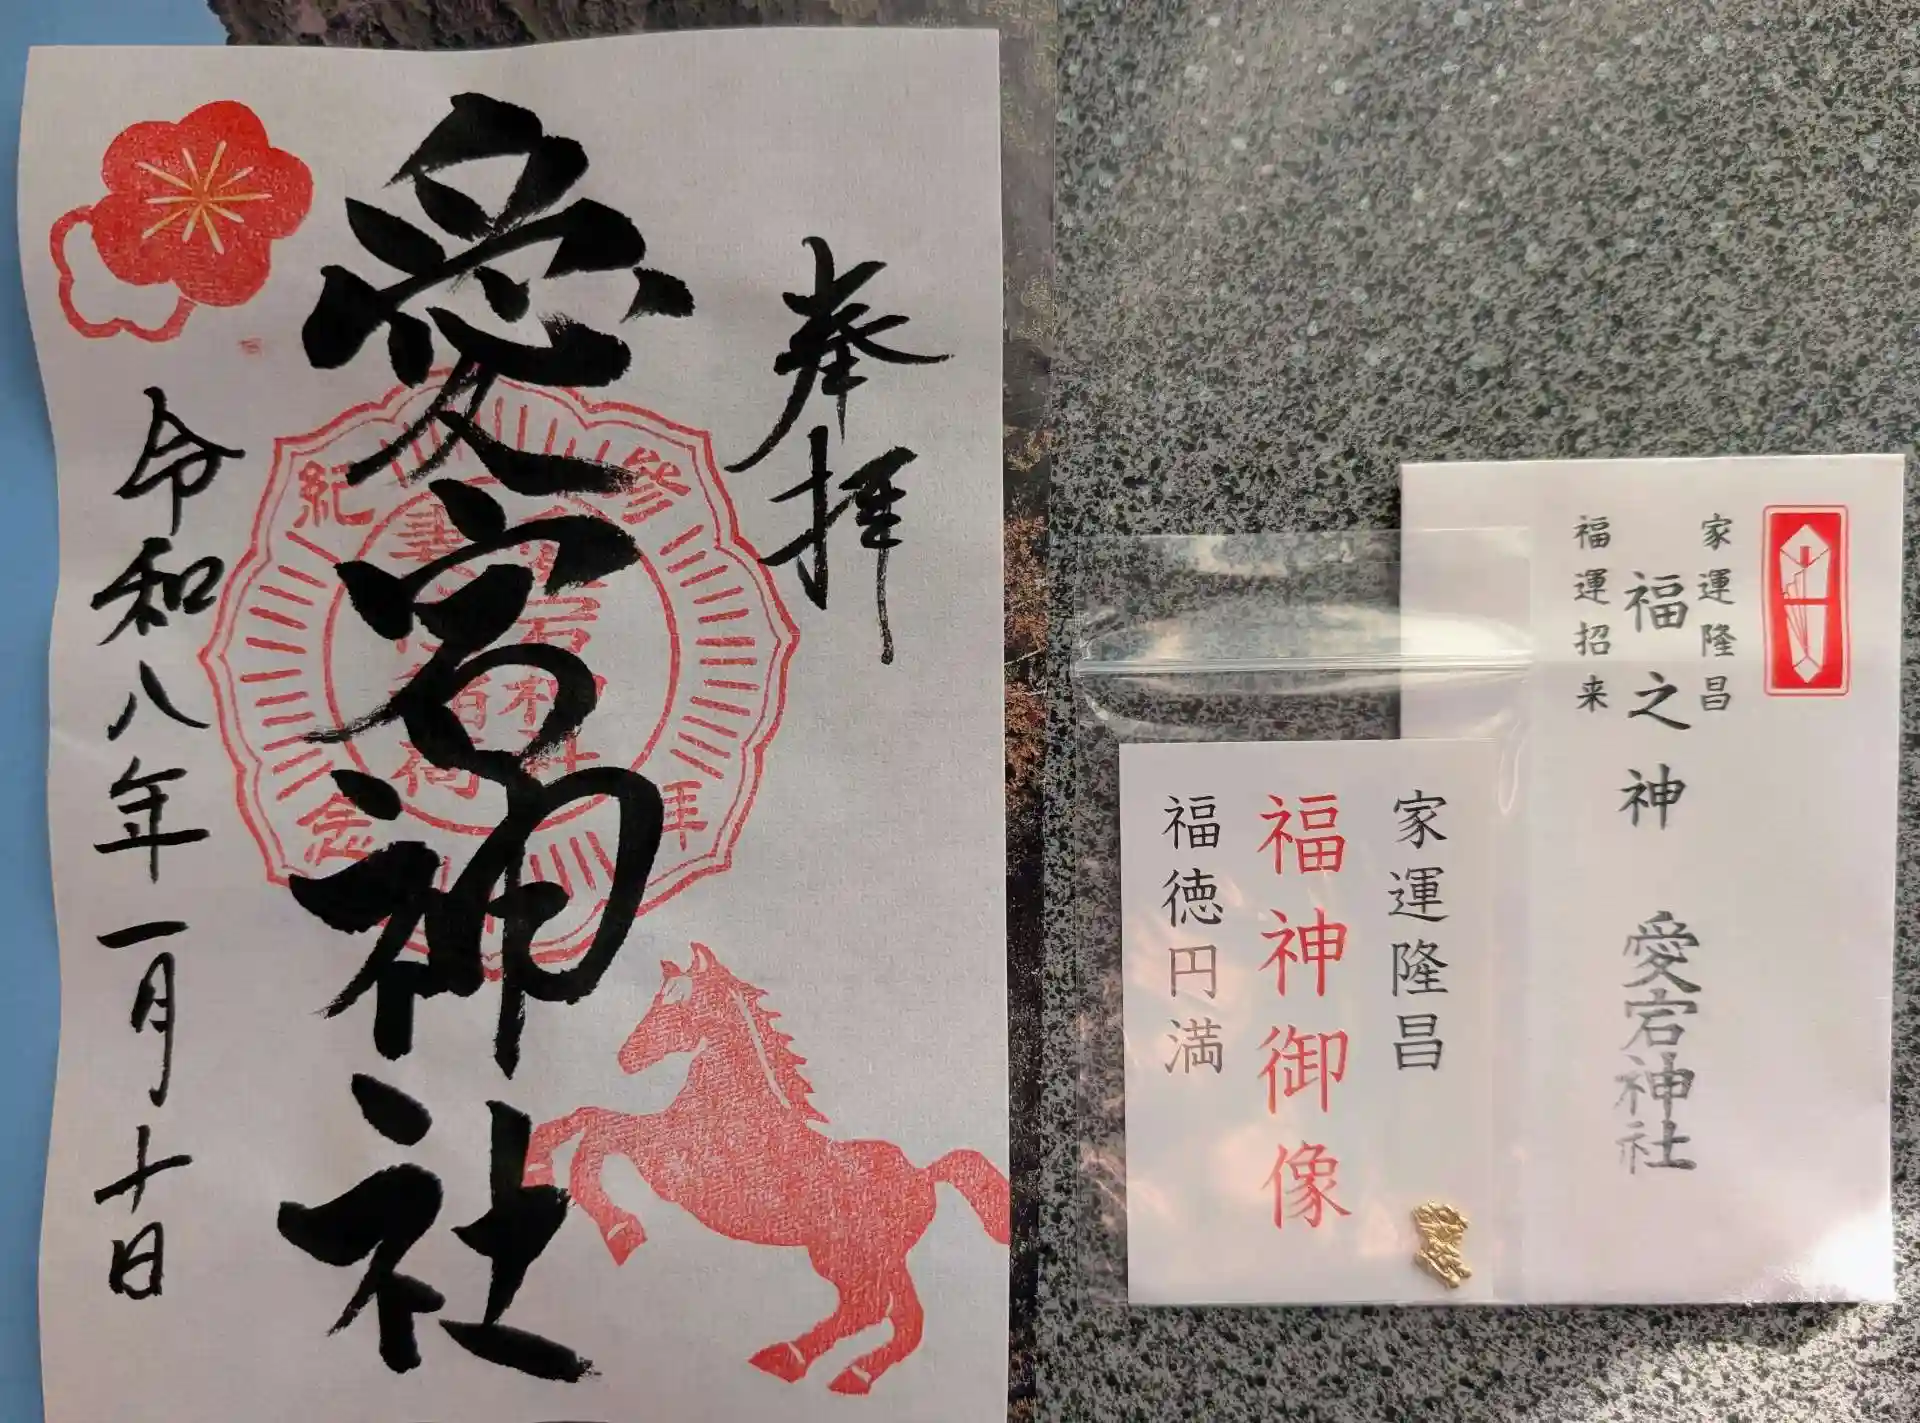 奉拝
愛宕神社
令和八年一月十日
参
年
紀
念
家運隆昌
福之神 愛宕神社
福運招来
家運隆昌
福神御像
福徳円満